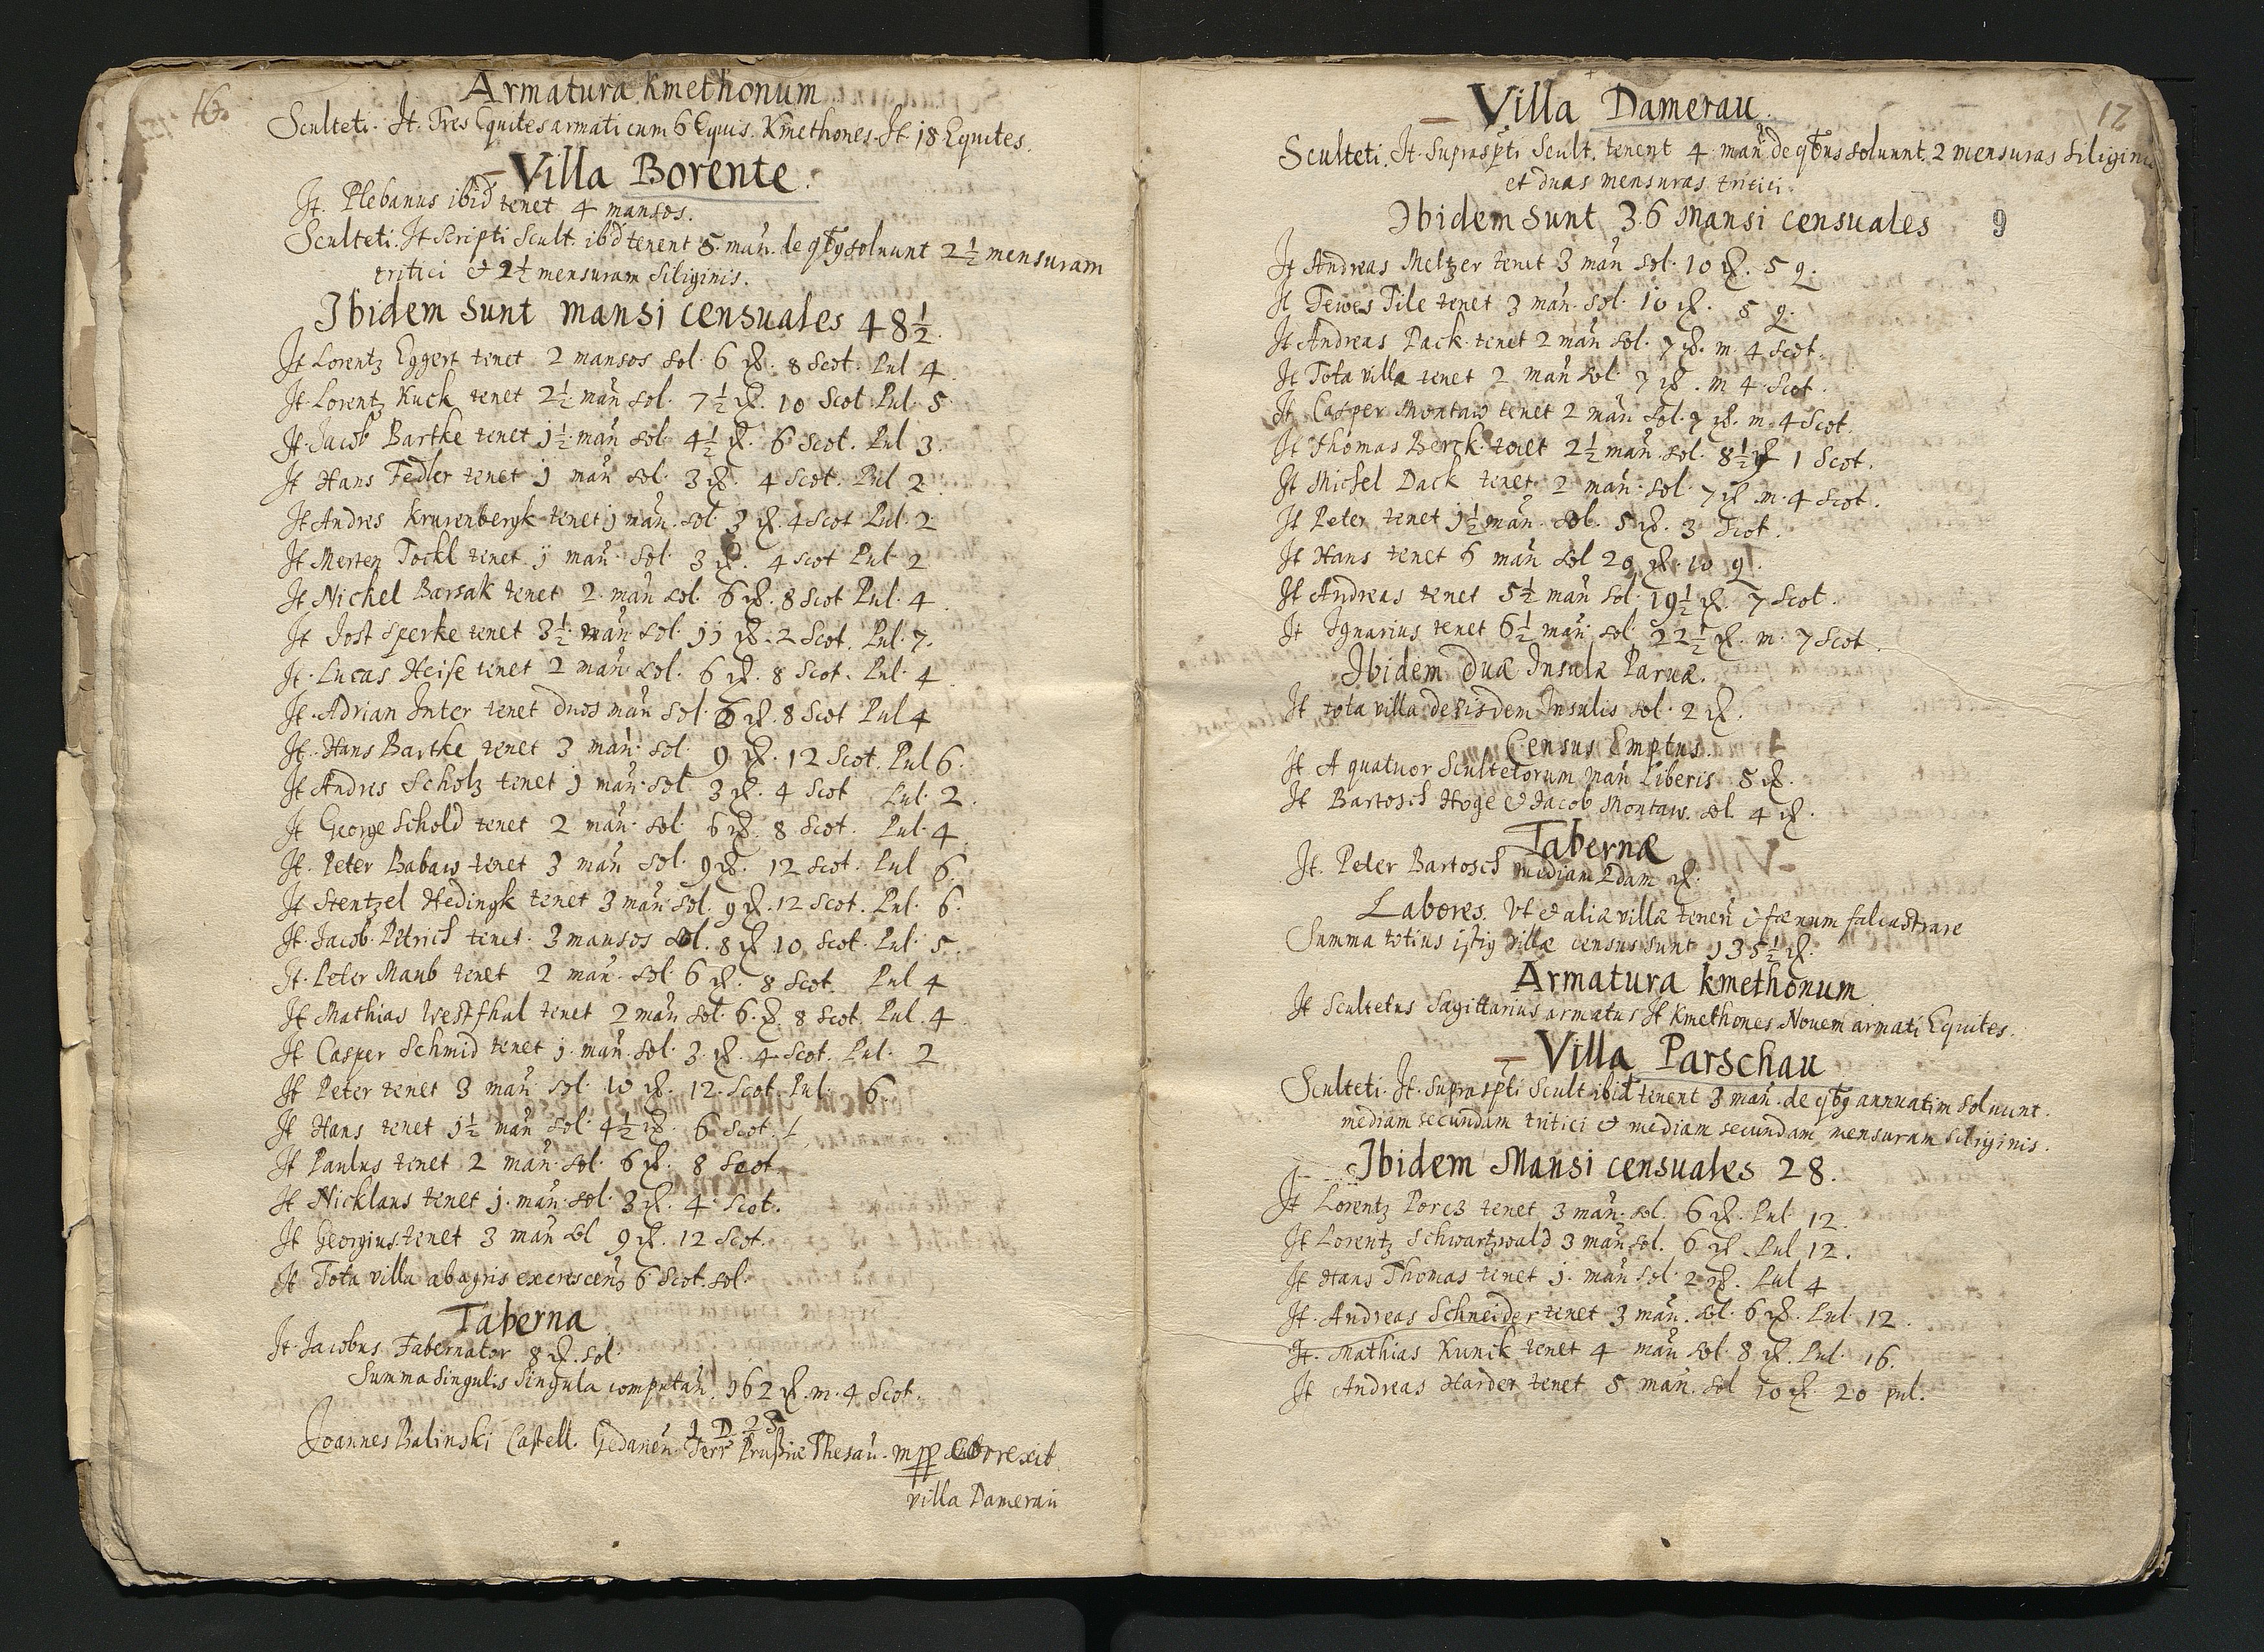 16.
Armatura kmethonum
Sculteti. It. Tres Equites armati cum 6 Equis. Kmethones. It 18 Equites.
Villa Borente.
It. Plebanus ibid tenet 4 mansos.
Sculteti. It scripti Scult. ibd tenent 5. man. de qbq soluunt 2½ mensuram
tritici et 2½ mensuram siliginis.
Ibidem sunt mansi censuales 48½.
It Lorentz Eggert tenet 2 mansos sol. 6 ꝶ. 8 Scot. Pul 4.
It. Lorentz Kuck tenet 2½ man sol. 7½ ꝶ. 10 Scot Pul. 5
It. Jacob Bartke tenet j½ man sol. 4½ ꝶ. 6 Scot. Pul 3.
It Hans Fedler tenet j man sol. 3 ꝶ. 4 Scot. Pul 2.
It Andres Krurenbergk tenet j man. sol. 3 ꝶ. 4 Scot Pul. 2
It Merten Tockl tenet j man sol. 3 ꝶ. 4 Scot Pul 2
It Nickel Barsak tenet 2 man sol. 6 ꝶ. 8 Scot Pul. 4.
It Jost Sperke tenet 3½ man sol. jj ꝶ. 2 Scot. Pul. 7.
It. Lucas Heise tenet 2 man sol. 6 ꝶ. 8 Scot. Pul. 4.
It. Adrian Inter tenet duos man sol. 6 ꝶ. 8 Scot Pul 4
It. Hans Bartke tenet 3 man sol. 9 ꝶ. 12 Scot. Pul 6.
It Andres Scholz tenet j man. sol 3 ꝶ. 4 Scot Pul. 2.
It George Schold tenet 2 man. sol. 6 ꝶ. 8 Scot. Pul. 4
It. Peter Babaw tenet 3 man sol. 9 ꝶ. 12 Scot. Pul 6.
It Stentzel Hedingk tenet 3 man. sol. 9 ꝶ. 12 Scot. Pul. 6.
It. Jacob Petrich tenet. 3 mansos sol. 8 ꝶ 10 Scot. Pul. 5.
It. Peter Maub tenet 2 man. sol 6 ꝶ. 8 Scot. Pul 4
It Mathias Westfhal tenet 2 man sol. 6 ꝶ. 8 Scot. Pul. 4.
It Casper Schmid tenet j. man. sol. 3 ꝶ. 4 Scot. Pul. 2
It Peter tenet 3 man sol. 10 ꝶ. 12. Scot. Pul. 6.
It Hans tenet j½ man sol. 4½ ꝶ. 6 Scot.
It Paulus tenet 2 man. sol. 6 ꝶ. 8 Scot
It Nicklaus tenet j. man. sol. 3 ꝶ. 4 Scot.
It Georgius tenet 3 man sol 9 ꝶ. 12 Scot.
It Tota villa ab agris excrescens 6 Scot. sol.
Taberna
It. Jacobus Tabernator 8 ꝶ. sol.
Summa singulis singula computan. 162 ꝶ. m. 4 Scot.
Joannes Balinski Castell. Gedanen. Terr Prussiæ Thesau. mpp
villa Damerau
17
Villa Damerau.
Sculteti. It. Suprascpti Scult. tenent 4 man de qbus soluunt 2 mensuras siliginis
et duas mensuras tritici.
Ibidem sunt 36 Mansi censuales
9
It Andreas Meltzer tenet 3 man sol. 10 ꝶ. 5 q.
It Tewes Tile tenet 3 man. sol. 10 ꝶ. 5 q.
It Andreas Pack. tenet 2 man sol. 7 ꝶ. m. 4 Scot.
It Tota villa tenet 2 man sol 7 ꝶ. m 4 Scot.
It Casper Montaw tenet 2 man sol. 7 ꝶ. m. 4 Scot.
It Thomas Berck tenet 2½ man sol. 8½ ꝶ 1 Scot.
It Michel Dack tenet 2 man. sol. 7 ꝶ. m. 4 Scot.
It Peter tenet j½ man. sol. 5 ꝶ. 3 Scot.
It Hans tenet 6 man sol 20 ꝶ. 10 q.
It Andreas tenet 5½ man sol. 19½ ꝶ. 7 Scot.
It Ignarius tenet 6½ man sol. 22½ ꝶ. m. 7 Scot.
Ibidem duæ Insulæ Parvæ.
It tota villa de eisdem Insulis sol. 2 ꝶ.
Census Emptus.
It A quatuor Scultetorum man Liberis 5 ꝶ.
It Bartosch Hoge et Jacob Montaw. sol. 4 ꝶ.
Tabernæ
It. Peter Bartosch mediam 2dam ꝶ.
Labores. Vt et aliæ villæ tenen et fænum falcastrare
Summa totius istiq villæ census sunt 135½ ꝶ.
Armatura kmethonum
It Scultetus Sagittarius armatus It Kmethones Novem armati Equites.
Villa Parschau
Sculteti. It. Suprascpti Scult ibid tenent 3 man. de qbq annuatim soluunt.
mediam secundam tritici et mediam secundam mensuram siliginis.
Ibidem Mansi censuales 28.
It Lorentz Porcz tenet 3 man. sol. 6 ꝶ. Pul 12.
It Lorentz Schwartzwald 3 man sol. 6 ꝶ. Pul 12.
It Hans Thomas tenet j. man sol. 2 ꝶ. Pul 4
It. Andreas Schneider tenet 3 man. sol. 6 ꝶ. Pul. 12.
It. Mathias Kunck tenet 4 man sol. 8 ꝶ. Pul. 16.
It Andreas Harder tenet 5 man. sol 10 ꝶ. 20 pul.